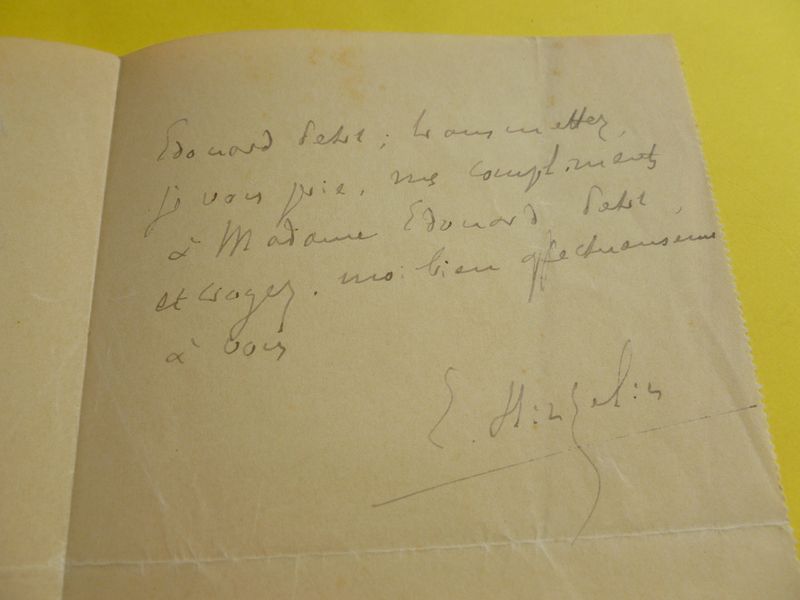 Edouard Petit ; transmettez,
je vous prie, mes compliments
à Madame Edouard Petit,
et croyez-moi bien affectueusement
à vous
E. Hinzelin